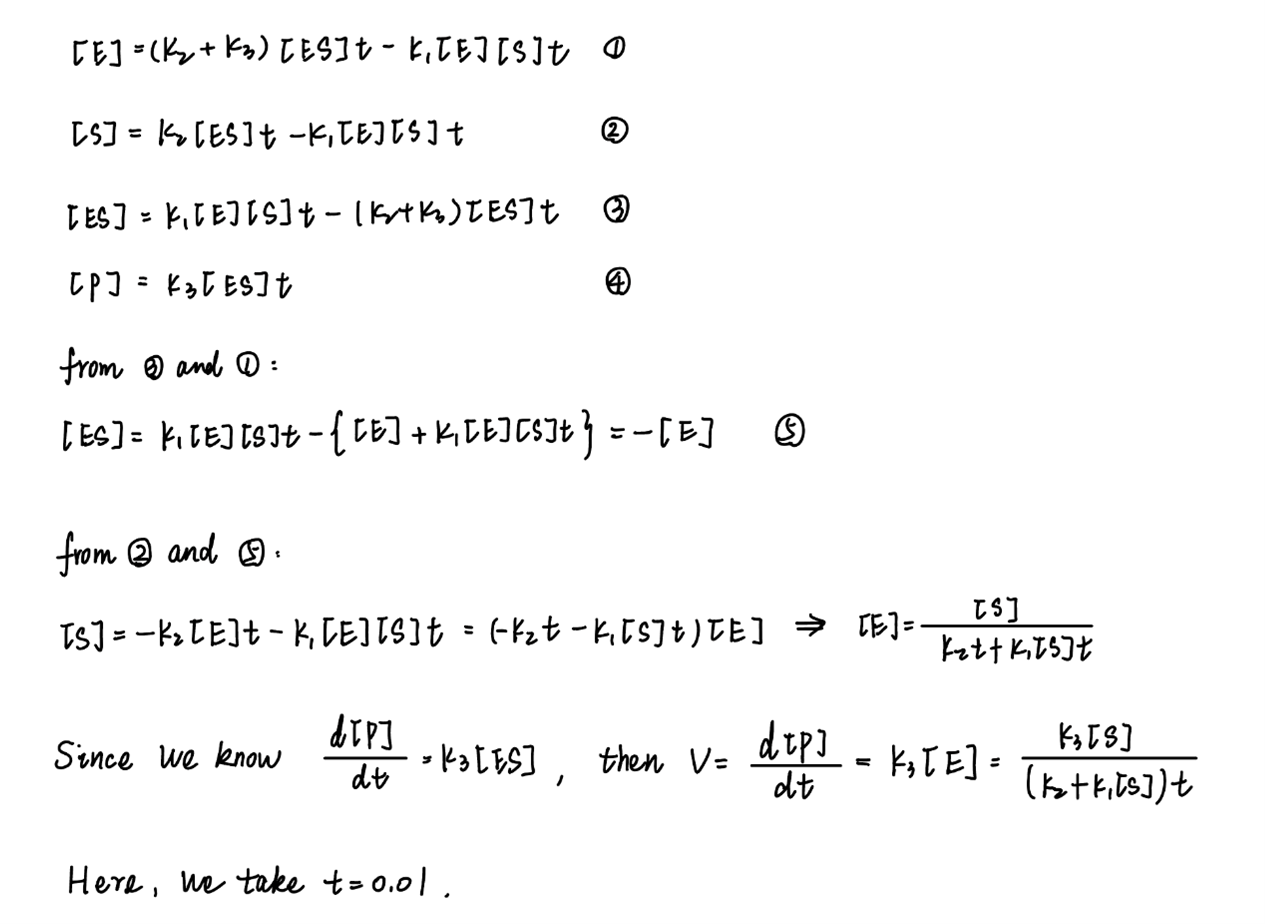 [E] = (k₂ + k₃) [ES]t - k₁[E][S]t ①
[S] = k₂[ES]t - k₁[E][S]t ②
[ES] = k₁[E][S]t - (k₂+k₃)[ES]t ③
[P] = k₃[ES]t ④
from ③ and ①:
[ES] = k₁[E][S]t - {[E] + k₁[E][S]t} = -[E] ⑤
from ② and ⑤:
[S] = -k₂[E]t - k₁[E][S]t = (-k₂t - k₁[S]t)[E] ⇒ [E] = [S] / (k₂t + k₁[S]t)
Since we know d[P]/dt = k₃[ES], then V = d[P]/dt = k₃[E] = k₃[S] / (k₂+k₁[S])t
Here, we take t=0.01.